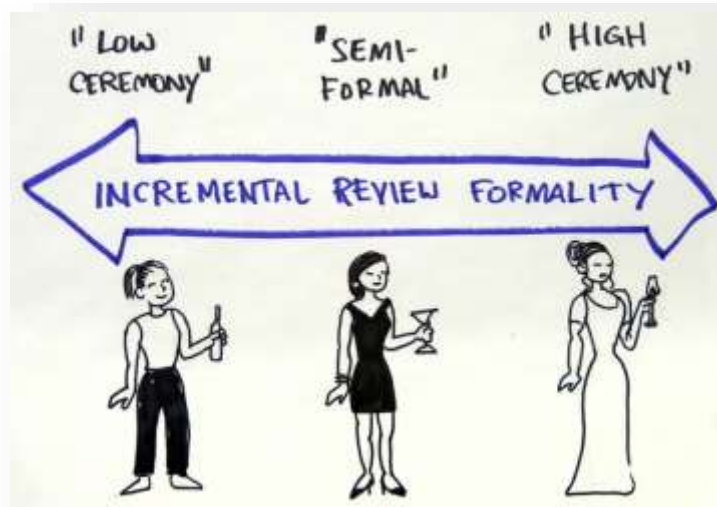 "LOW
CEREMONY"
"SEMI-
FORMAL"
"HIGH
CEREMONY"
INCREMENTAL REVIEW FORMALITY